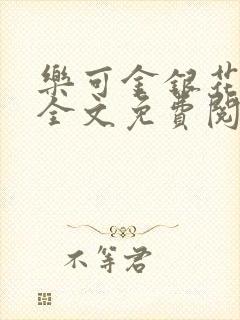 樂可金銀花
全文免費閱
不等君